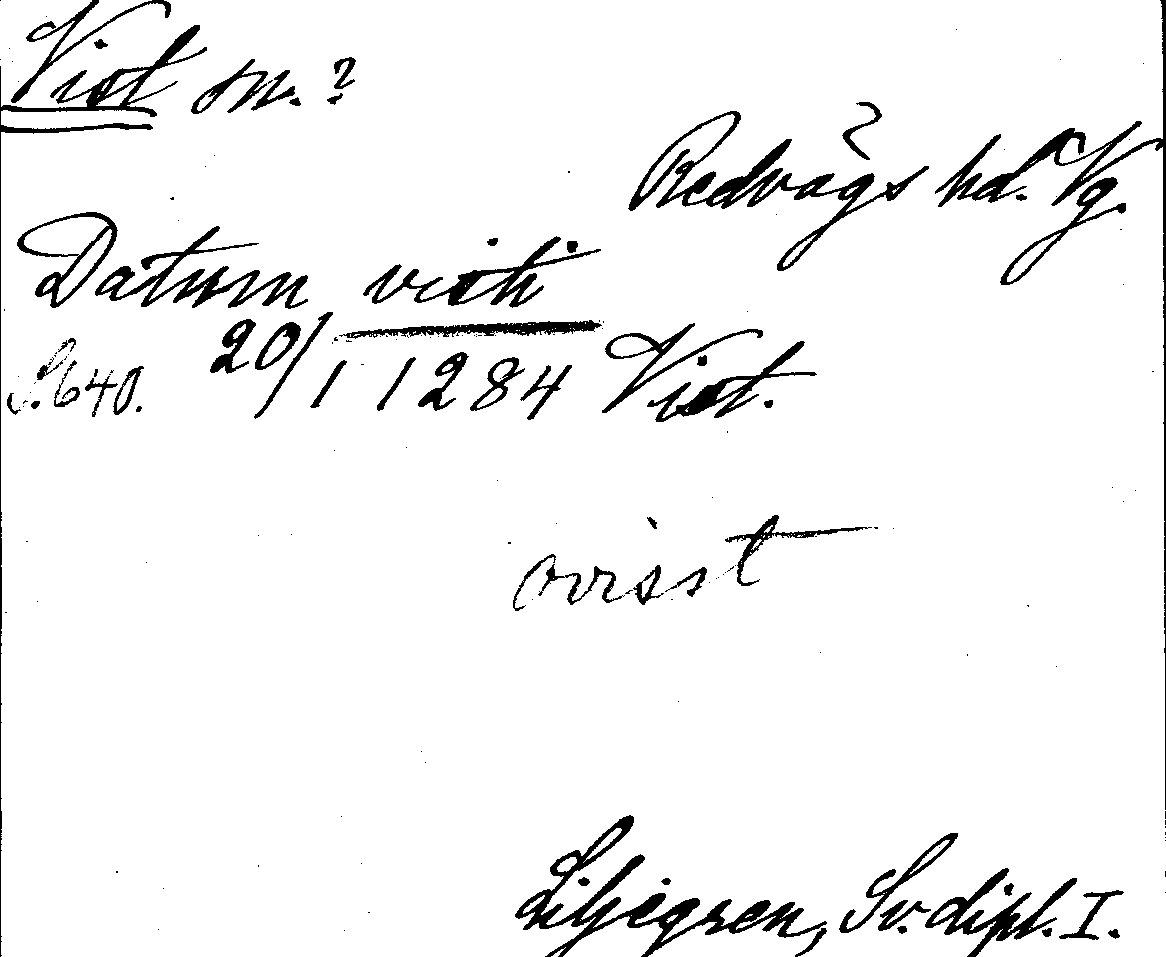 Vist sn. ?
Redvägs hd. Vg.
Datum visti
S. 640. 20/1 1284 Vist.
ovisst
Liljegren, Sv. dipl. I.